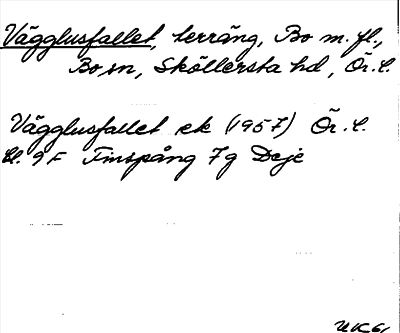 Vägglusfallet, terräng, Bo m. fl.,
Bo sn, Sköllersta hd, Ör. l.
Vägglusfallet ek (1957) Ör. l.
bl. 9F Finspång 7g Deje